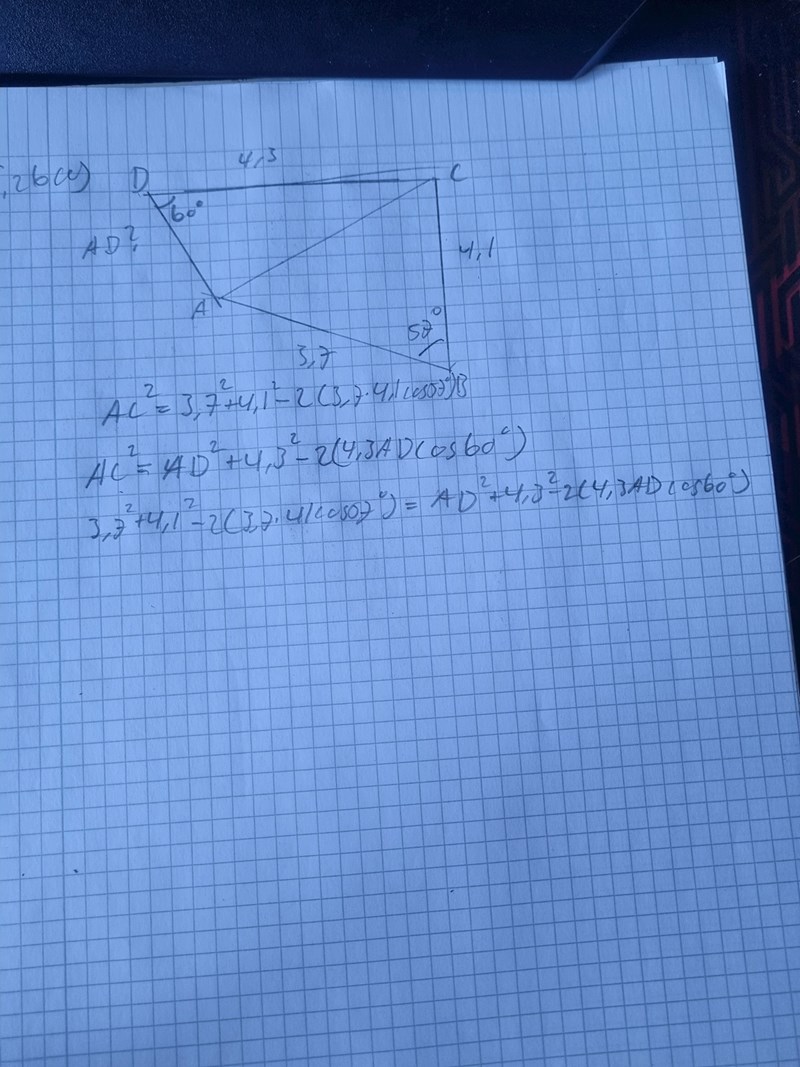 4,3
,26(a)
D
C
60°
AD?
4,1
A
57°
3,7
B
AC² = 3,7² + 4,1² - 2(3,7·4,1cos57°)
AC² = AD² + 4,3² - 2(4,3ADcos60°)
3,7² + 4,1² - 2(3,7·4,1cos57°) = AD² + 4,3² - 2(4,3ADcos60°)